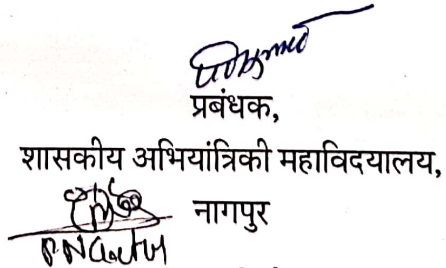 प्रबंधक,
शासकीय अभियांत्रिकी महाविदयालय,
नागपुर